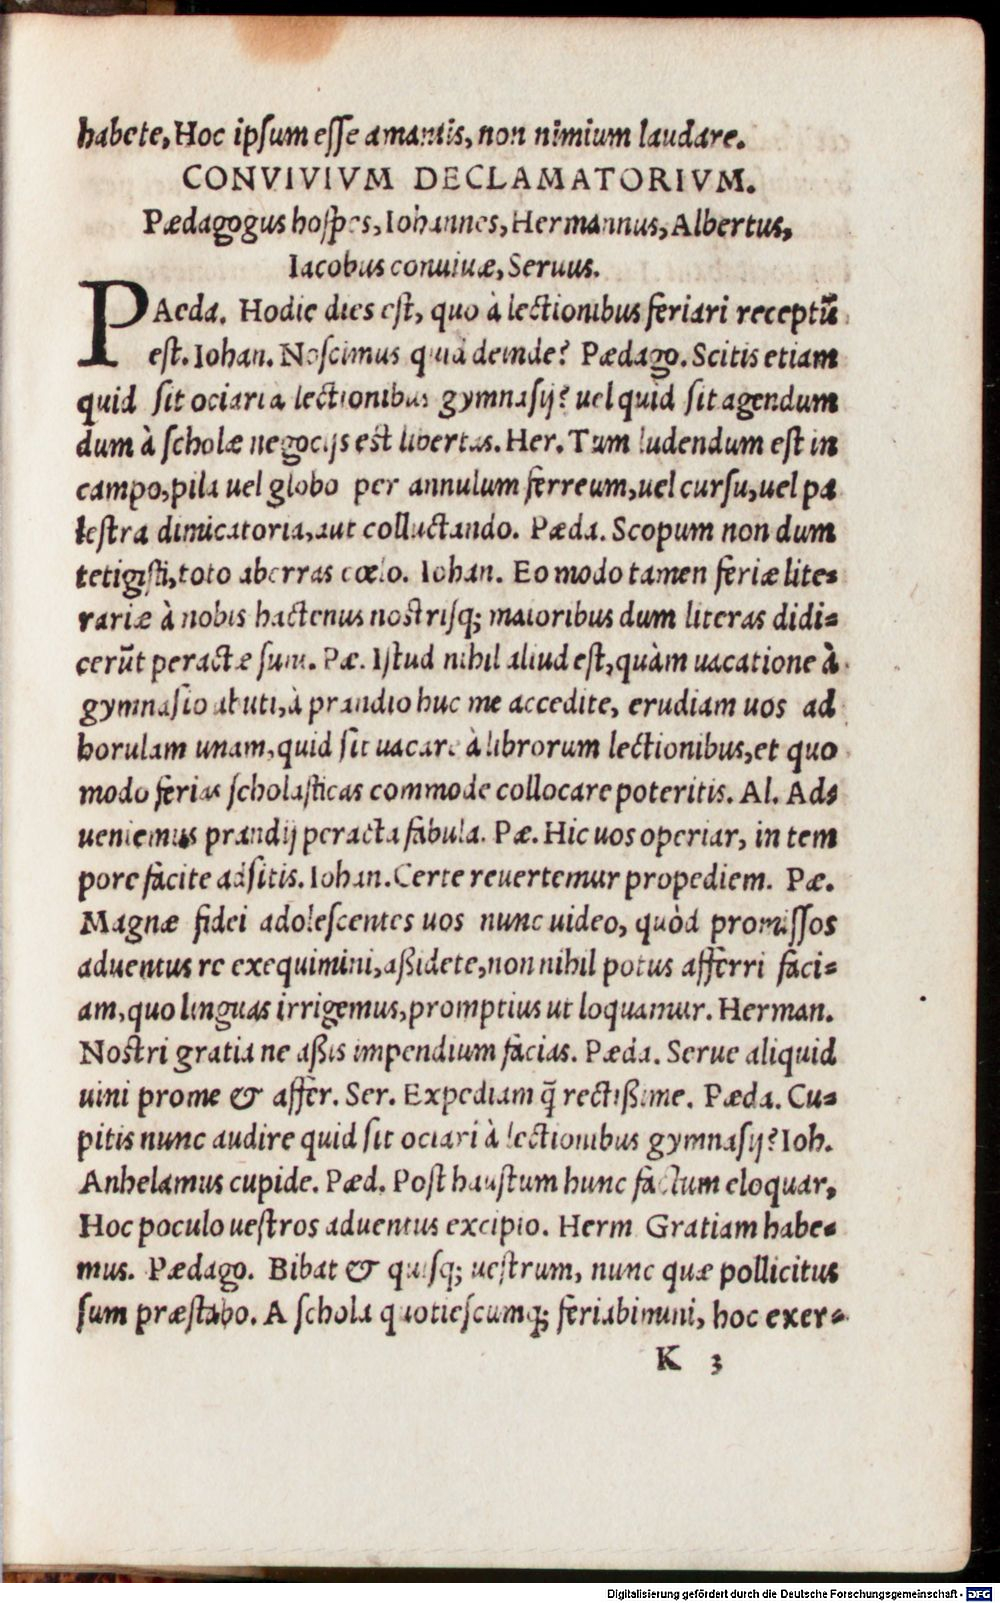 habete, Hoc ipsum esse amantis, non nimium laudare.
CONVIVIVM DECLAMATORIVM.
Pædagogus hospes, Iohannes, Hermannus, Albertus,
Iacobus conuiuæ, Seruus.
PAeda. Hodie dies est, quo à lectionibus feriari receptũ
est. Iohan. Noscimus quid deinde? Pædago. Scitis etiam
quid sit ociari a lectionibus gymnasij? uel quid sit agendum
dum à scholæ negocijs est libertas. Her. Tum ludendum est in
campo, pila uel globo per annulum ferreum, uel cursu, uel pa
lestra dimicatoria, aut colluctando. Pæda. Scopum non dum
tetigisti, toto aberras cœlo. Iohan. Eo modo tamen feriæ lite-
rariæ à nobis hactenus nostrisq; maioribus dum literas didi-
cerũt peractæ sunt. Pæ. Istud nihil aliud est, quàm uacatione à
gymnasio abuti, à prandio huc me accedite, erudiam uos ad
horulam unam, quid sit uacare à librorum lectionibus, et quo
modo ferias scholasticas commode collocare poteritis. Al. Ad-
ueniemus prandij peracta fabula. Pæ. Hic uos operiar, in tem
pore facite adsitis. Iohan. Certe reuertemur propediem. Pæ.
Magnæ fidei adolescentes uos nunc uideo, quòd promissos
aduentus re exequimini, aßidete, non nihil potus afferri faci-
am, quo linguas irrigemus, promptius ut loquamur. Herman.
Nostri gratia ne aßis impendium facias. Pæda. Serue aliquid
uini prome & affer. Ser. Expediam q̃ rectißime. Pæda. Cu-
pitis nunc audire quid sit ociari à lectionibus gymnasij? Ioh.
Anhelamus cupide. Pæd. Post haustum hunc factum eloquar,
Hoc poculo uestros aduentus excipio. Herm Gratiam habe-
mus. Pædago. Bibat & quisq; uestrum, nunc quæ pollicitus
sum præstabo. A schola quotiescumq; feriabimini, hoc exer-
K 3
Digitalisierung gefördert durch die Deutsche Forschungsgemeinschaft - DFG